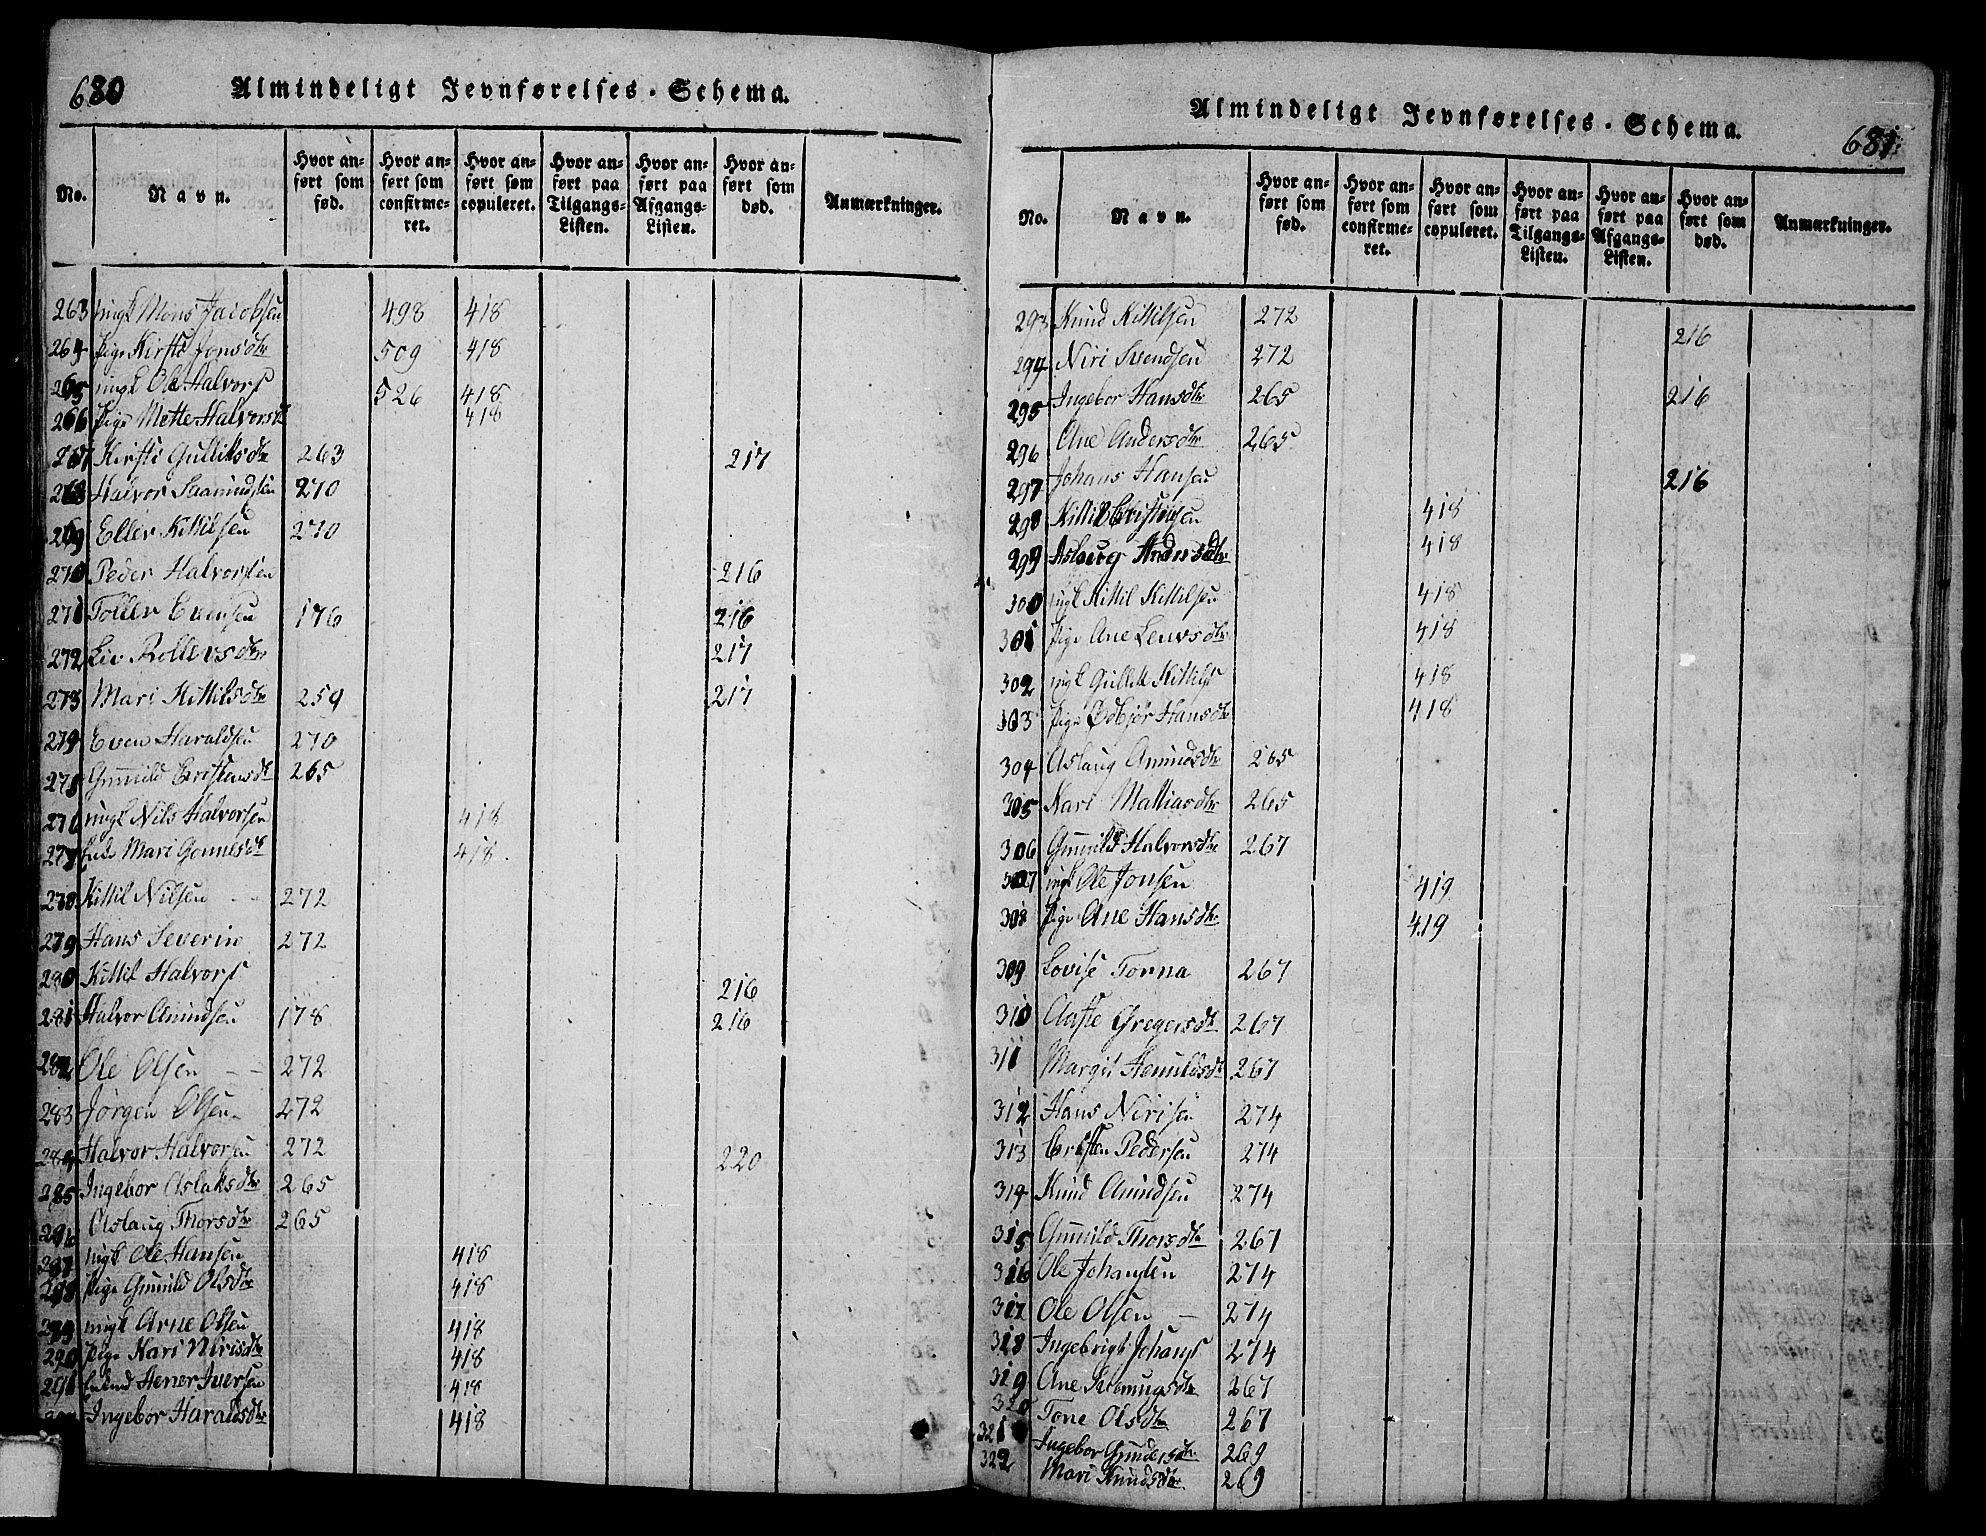 680 Almindeligt Jevnførelses-Schema.
No. Navn. Hvor anført som fød. Hvor anført som confirmeret. Hvor anført som copuleret. Hvor anført paa Tilgangs-Listen. Hvor anført paa Afgangs-Listen. Hvor anført som død. Anmærkninger.
263 ungk Mons Jacobsen 498 418
264 Pige Kirsti Jonsdtr 509 418
265 ungk Ole Halvors 526 418
266 Pige Mette Halvorsdtr 418
267 Kirsti Gulliksdtr 263 217
268 Halvor Saamundsen 270
269 Eller Kittilsen 270
270 Peder Halvorsen 216
271 Toller Evensen 176 216
272 Liv Rollevsdtr 217
273 Mari Kittilsdtr 259 217
274 Even Haraldsen 270
275 Gunnild Cristensdtr 265
276 ungk Nils Halvorsen 418
277 Mari Gonnelsdtr 418
278 Kittil Nilsen 272
279 Hans Severin 272
280 Kittil Halvors 216
281 Halvor Amundsen 178 216
282 Ole Olsen 272
283 Jørgen Olsen 272
284 Halvor Halvorsen 272 220
285 Ingebor Aslaksdtr 265
286 Aslaug Thorsdtr 265
287 ungk Ole Hansen 418
288 Pige Gunnild Olsdtr 418
289 ungk Arne Olsen 418
290 Pige Kari Nirisdtr 418
291 Iversen 418
Ingebor Haraldsdtr 418
Almindeligt Jevnførelses-Schema. 681.
No. Navn. Hvor anført som fød. Hvor anført som confirmeret. Hvor anført som copuleret. Hvor anført paa Tilgangs-Listen. Hvor anført paa Afgangs-Listen. Hvor anført som død. Anmærkninger.
293 Knud Kittilsen 272 216
294 Niri Svendsen 272
295 Ingebor Hansdtr 265 216
296 Ane Andersdtr 265
297 Johans Hansen 216
298 Kittil Cristensen 418
299 Asborg Andersdtr 418
300 ungk Kittil Kittilsen 418
301 Pige Ane Leuvsdtr 418
302 ungk Gullik Kittils 418
303 PigeØdbjør Hansdtr 418
304 Aslaug Amundsdtr 265
305 Kari Mathiasdtr 265
306 Gunnild Halvorsdtr 267
307 ungk Ole Jonsen 419
308 Pige Ane Hansdtr 419
309 Lovise Torna 267
310 Aaste Gregersdtr 267
311 Margit 267
312 Hans Nirisen 274
313 Cristen Pedersen 274
314 Knud Amundsen 274
315 Gunnild Thorsdtr 267
316 Ole Johansen 274
317 Ole Olsen 274
318 Ingebrigt Johans 274
319 Ane 267
320 Tone Olsdtr 267
321 Ingebor Gundersdtr 269
322 Mari Knudsdtr 269